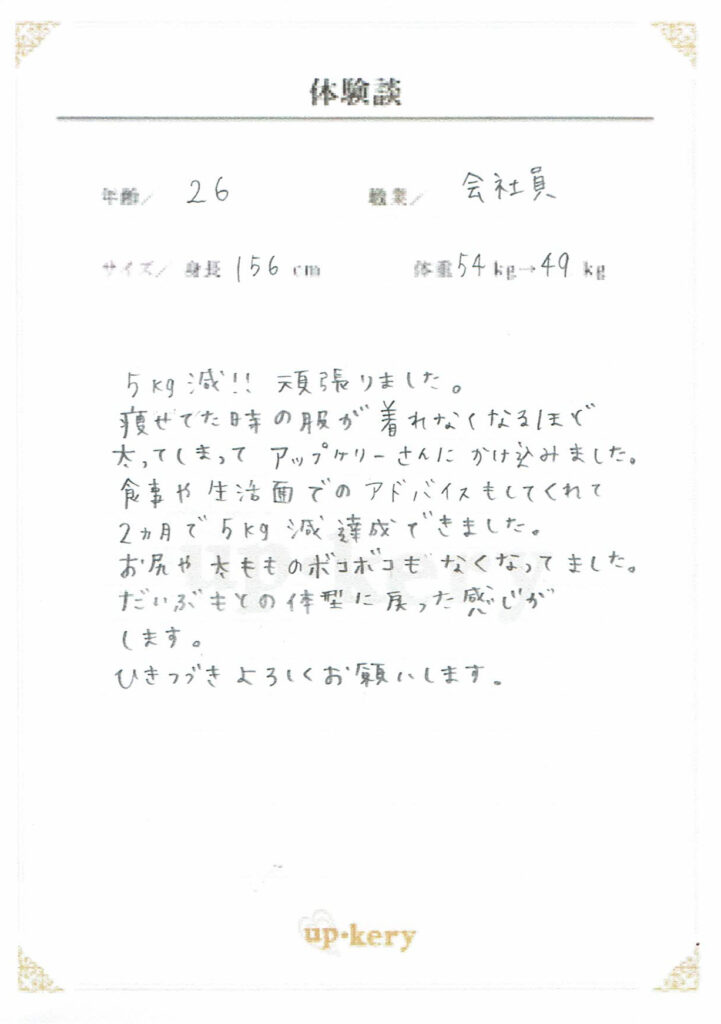 体験談
年齢／ 26 職業／ 会社員
サイズ／ 身長 156 cm 体重 54 kg→49 kg
5kg減!! 頑張りました。
痩せてた時の服が着れなくなるほど
太ってしまって アップケリーさんに かけ込みました。
食事や生活面でのアドバイスもしてくれて
2ヵ月で 5kg 減達成できました。
お尻や太もものボコボコも なくなってました。
だいぶもとの体型に戻った感じが
します。
ひきつづきよろしくお願いします。
up・kery
up・kery